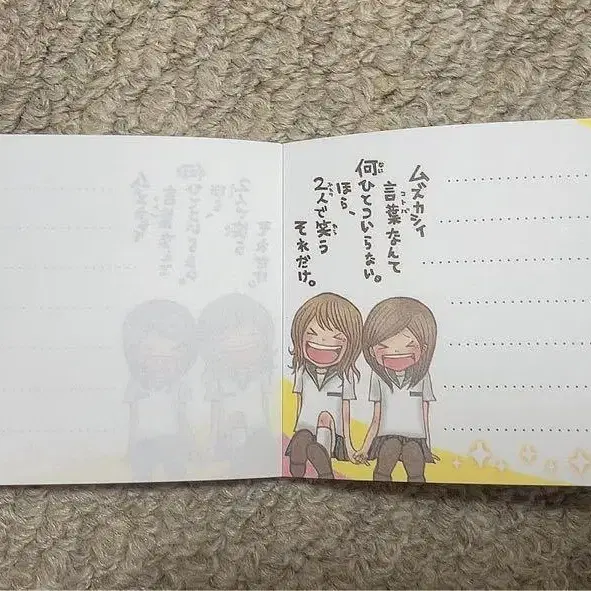 ムズカシイ
言葉なんて
何ひとついらない。
ほら、
2人で笑う
それだけ。